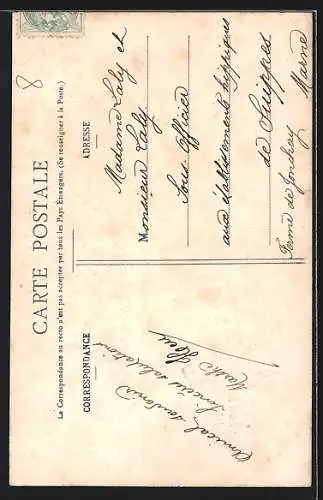 8
CARTE POSTALE
La Correspondance au recto n'est pas acceptée par tous les Pays Étrangers. (Se renseigner à la Poste.)
CORRESPONDANCE
Amical souvenir
Sincères salutations
ADRESSE
Madame Laly et
Monsieur Laly
Sous Officier
aux établissements hippiques
de Suippes
Ferme de Jonchery
Marne